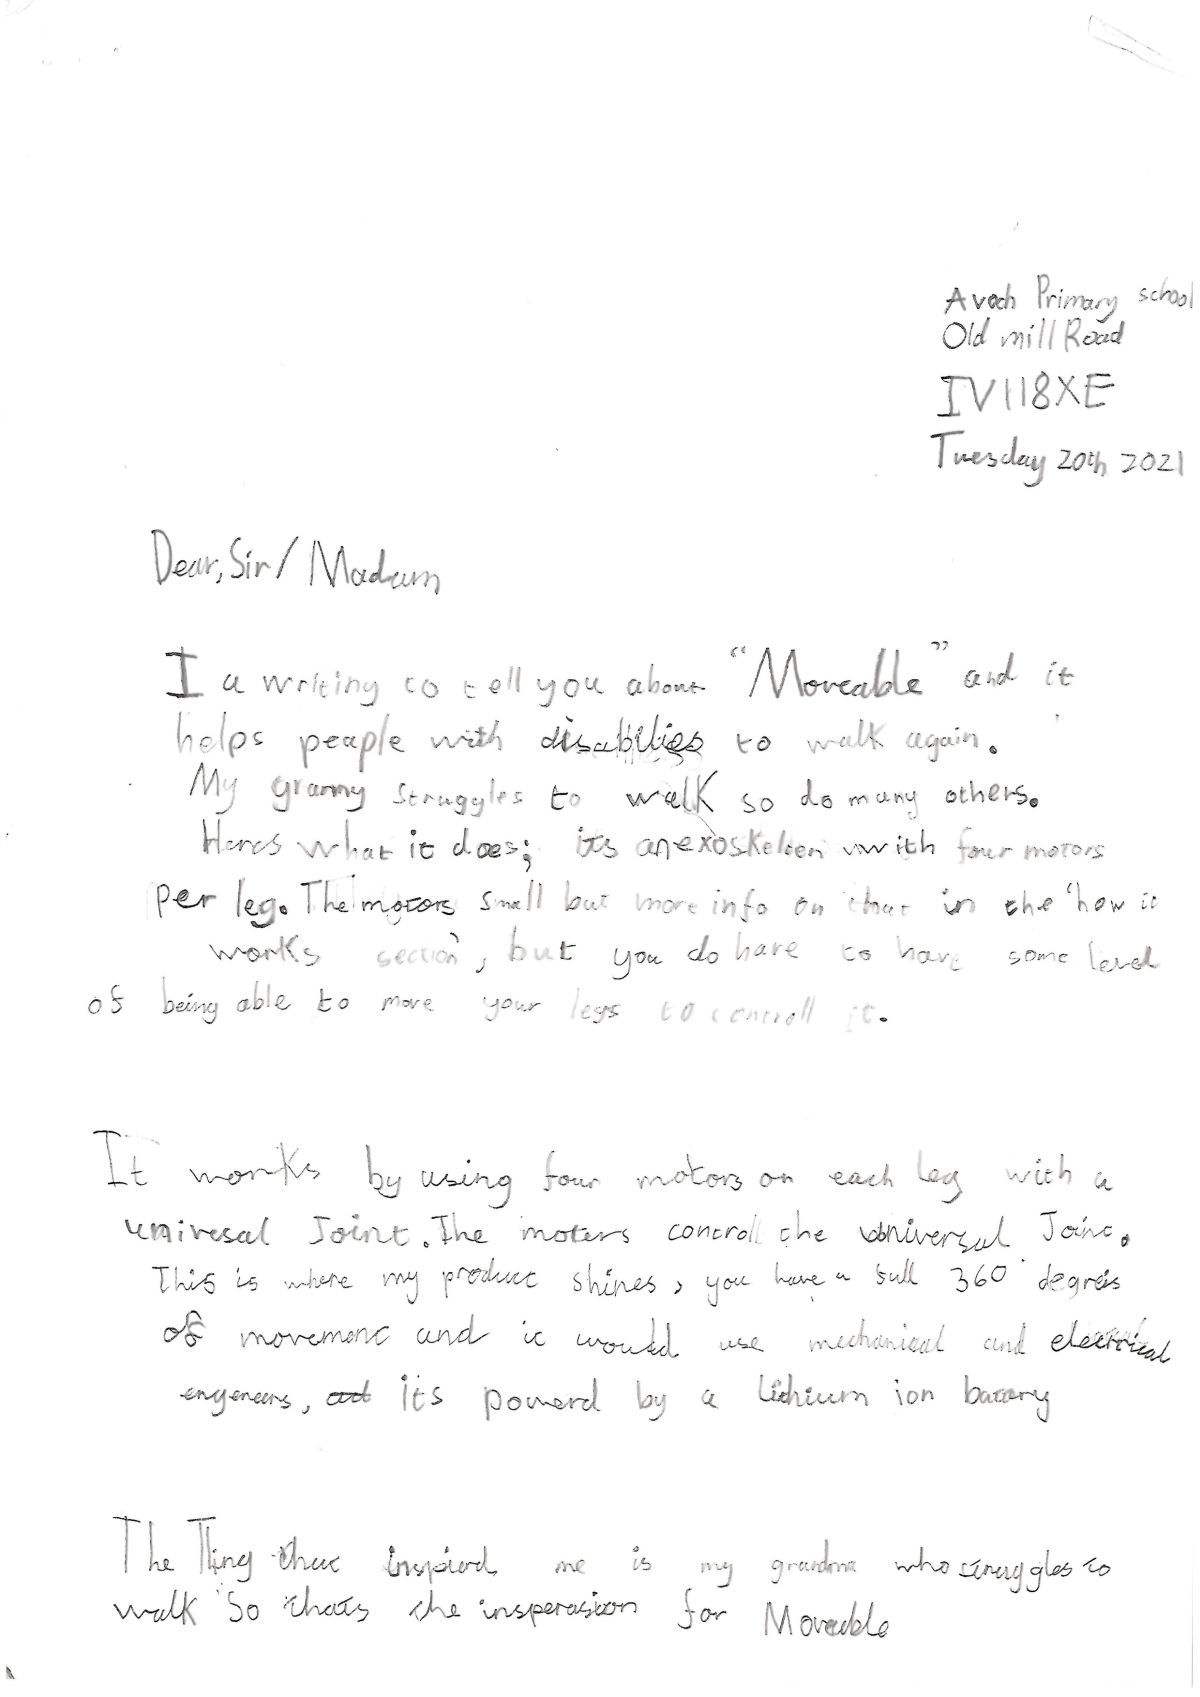 Avoch Primary school
Old mill Road
IV118XE
Tuesday 20th 2021
Dear, Sir/ Madam
I a writing to tell you about "Moveable" and it
helps peaple with disabilies to walk again.
My granny struggles to walk so do many others.
Heres what it does; its an exoskeleen with four motors
per leg. The motors small but more info on that in the 'how it
works section', but you do have to have some level
of being able to move your legs to controll it.
It works by using four motors on each leg with a
univesal Joint. The moters controll the universal Joint.
This is where my product shines, you have a full 360 degreis
of movement and it would use mechanical and electrical
engeneers, its powerd by a lithium ion battery
The Thing that inspierd me is my grandma who struggles to
walk So thats the insperasion for Moveable